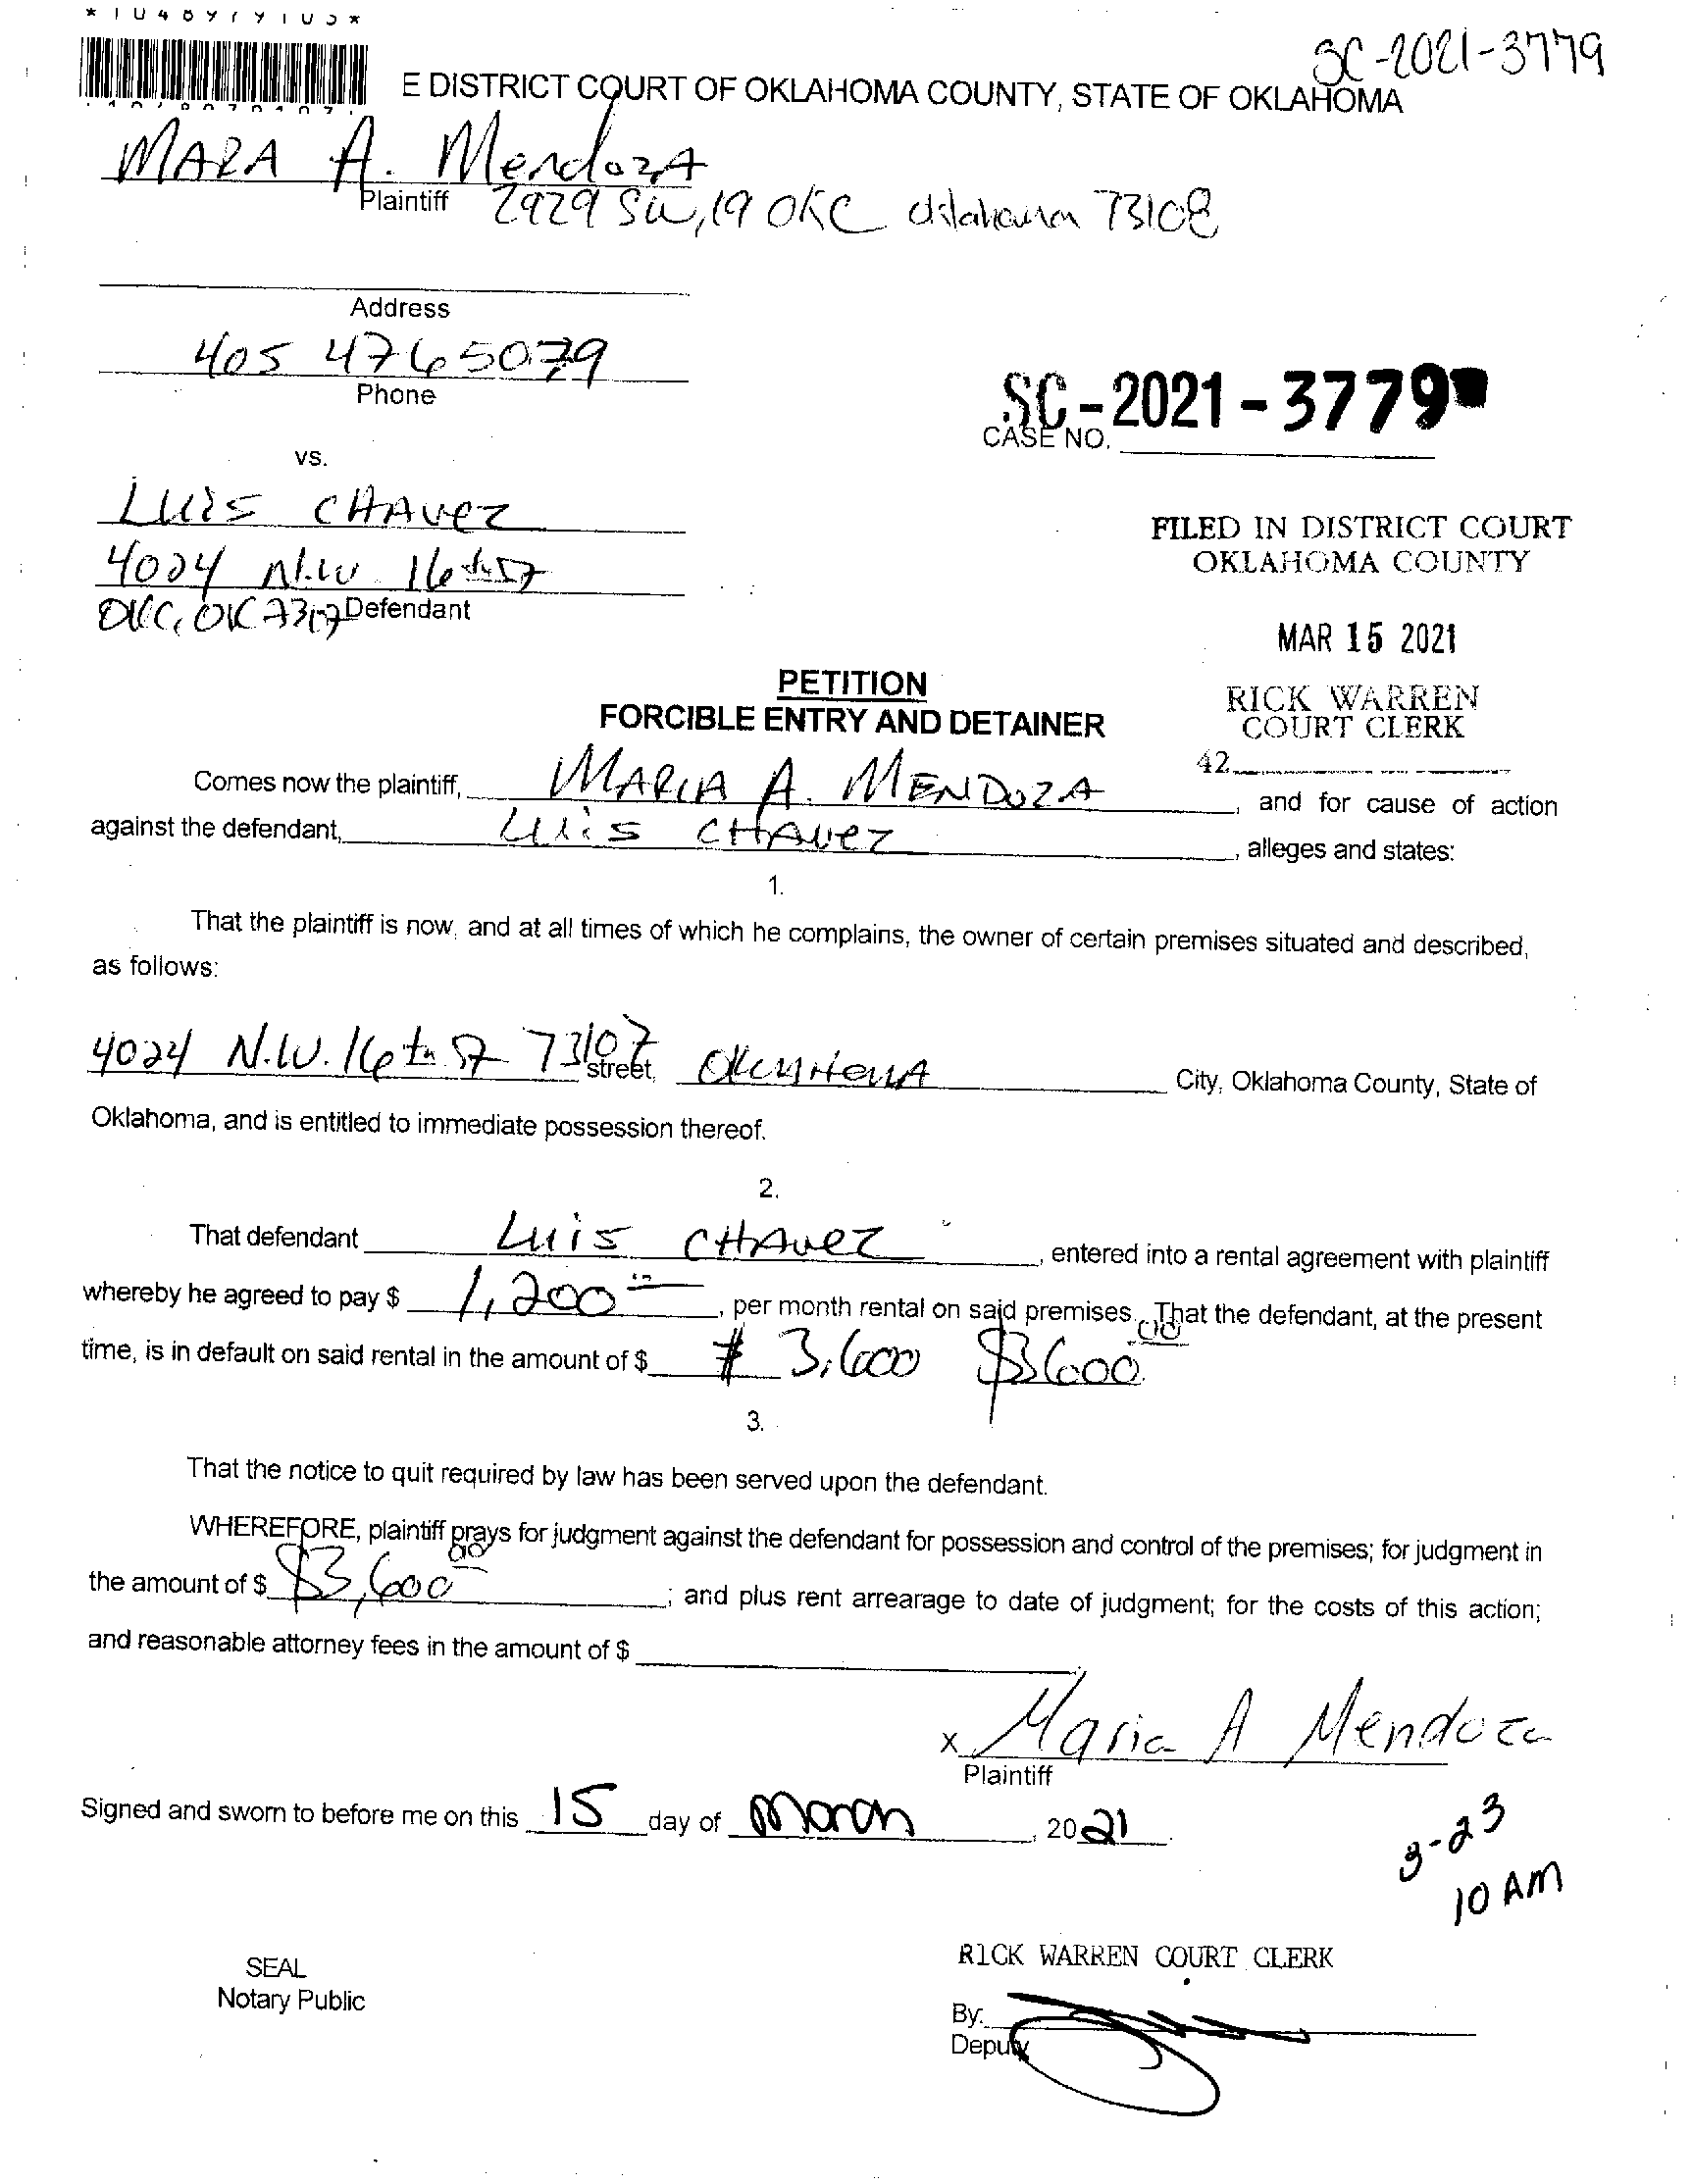 SC-2021-3779
E DISTRICT COURT OF OKLAHOMA COUNTY, STATE OF OKLAHOMA
MARA A. MendozA
Plaintiff 2929 SW, 19 OKC Oklahoma 73108
Address
405 4765079
Phone
SC-2021-3779
CASE NO.
vs.
LUIS CHAVEZ
4024 N.W. 16th ST
OKC, OK 73107 Defendant
FILED IN DISTRICT COURT
OKLAHOMA COUNTY
MAR 15 2021
RICK WARREN
COURT CLERK
42
PETITION
FORCIBLE ENTRY AND DETAINER
Comes now the plaintiff, MARIA A. MENDOZA, and for cause of action
against the defendant, Luis CHAVEZ, alleges and states:
1.
That the plaintiff is now, and at all times of which he complains, the owner of certain premises situated and described,
as follows:
4024 N.W. 16th ST 73107 street, OKLAHOMA City, Oklahoma County, State of
Oklahoma, and is entitled to immediate possession thereof.
2.
That defendant Luis CHAVEZ, entered into a rental agreement with plaintiff
whereby he agreed to pay $ 1,200, per month rental on said premises. That the defendant, at the present
time, is in default on said rental in the amount of $ # 3,600 $3600.00
3.
That the notice to quit required by law has been served upon the defendant.
WHEREFORE, plaintiff prays for judgment against the defendant for possession and control of the premises; for judgment in
the amount of $ $3,600 00; and plus rent arrearage to date of judgment; for the costs of this action;
and reasonable attorney fees in the amount of $
x Maria A Mendoza
Plaintiff
Signed and sworn to before me on this 15 day of March, 2021
3-23
10 AM
SEAL
Notary Public
RICK WARREN COURT CLERK
By:
Deputy